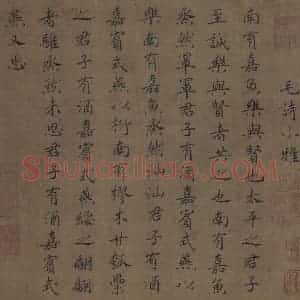 毛詩小雅
南有嘉魚樂與賢也太平之君子
至誠樂與賢者共之也南有嘉魚
烝然罩罩君子有酒嘉賓式燕以
樂南有嘉魚烝然汕汕君子有酒
嘉賓式燕以衎南有樛木甘瓠纍
之君子有酒嘉賓式燕綏之翩翩
者鵻烝然來思君子有酒嘉賓式
燕又思